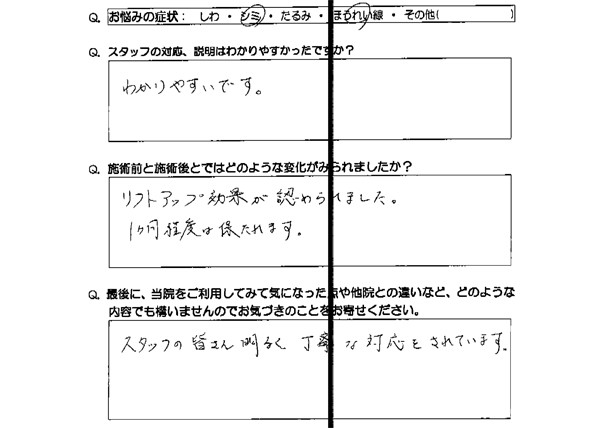 Q. お悩みの症状： しわ ・ シミ ・ たるみ ・ ほうれい線 ・ その他( )
Q. スタッフの対応、説明はわかりやすかったですか？
わかりやすいです。
Q. 施術前と施術後とではどのような変化がみられましたか？
リフトアップ効果が認められました。
1ヶ月程度は保たれます。
Q. 最後に、当院をご利用してみて気になった点や他院との違いなど、どのような
内容でも構いませんのでお気づきのことをお寄せください。
スタッフの皆さん明るく丁寧な対応をされています。